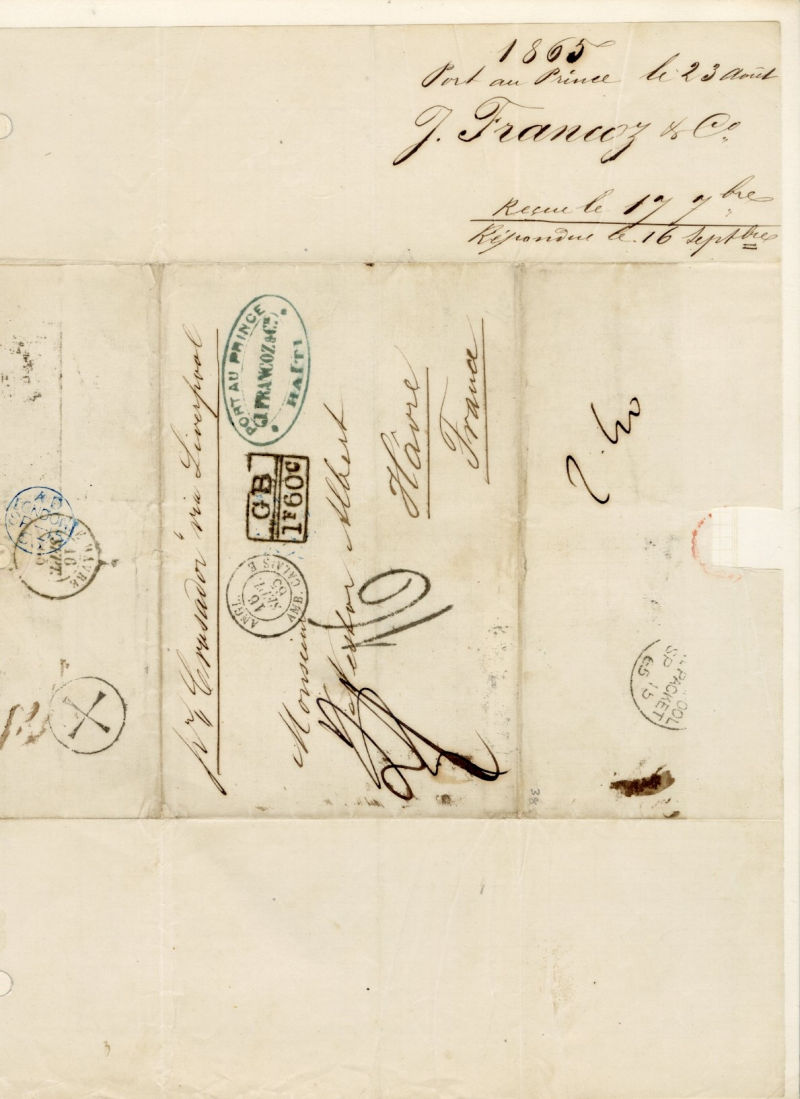 1865
Port au Prince le 23 août
J. Francoz & Co.
Reçue le 17 7bre
Répondue le 16 Septbre
pr "Crusador" via Liverpool
PORT AU PRINCE
J. FRANCOZ & Cie
HAITI
GB
1F60C
ANGL.
16
SEPT.
65
AMB. CALAIS
Monsieur
Nestor Albert
Hâvre
France
PACKET
SP 15
65
HAVRE
16
SEPT.
38